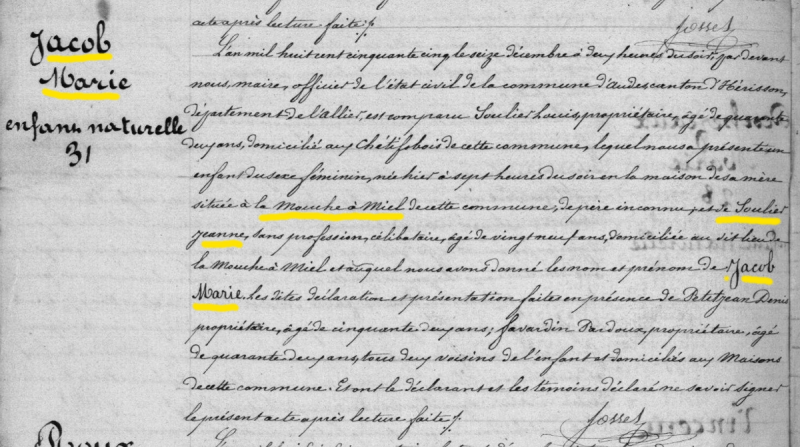 acte après lecture faite ./.
Josset
Jacob
Marie
enfant naturelle
31
L'an mil huit cent cinquante cinq le seize décembre à deux heures du soir, par devant
nous, maire, officier de l'état civil de la commune d'Audes canton d'Hérisson,
département de l'Allier, est comparu Soulier Louis, propriétaire, âgé de quarante
deux ans, domicilié aux Chétifsbois de cette commune, lequel nous a présenté un
enfant du sexe féminin, née hier à sept heures du soir en la maison de sa mère
située à la Mouche à Miel de cette commune, de père inconnu, et de Soulier
Jeanne, sans profession, célibataire, âgé de vingt neuf ans, domiciliée au dit lieu de
la Mouche à Miel et auquel nous avons donné les nom et prénom de Jacob
Marie. Les dites déclaration et présentation faites en présence de Petitjean Denis
propriétaire, âgé de cinquante deux ans; Favardin Pardoux, propriétaire, âgé
de quarante deux ans, tous deux voisins de l'enfant et domiciliés aux Maisons
de cette commune. Et ont le déclarant et les témoins déclaré ne savoir signer
le présent acte après lecture faite ./.
Josset